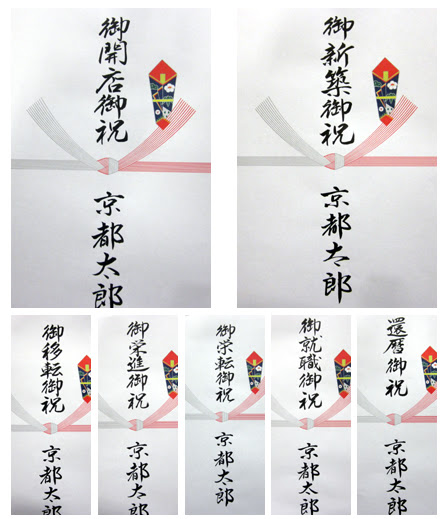 御開店御祝
京都太郎
御新築御祝
京都太郎
御移転御祝
京都太郎
御栄進御祝
京都太郎
御栄転御祝
京都太郎
御就職御祝
京都太郎
還暦御祝
京都太郎